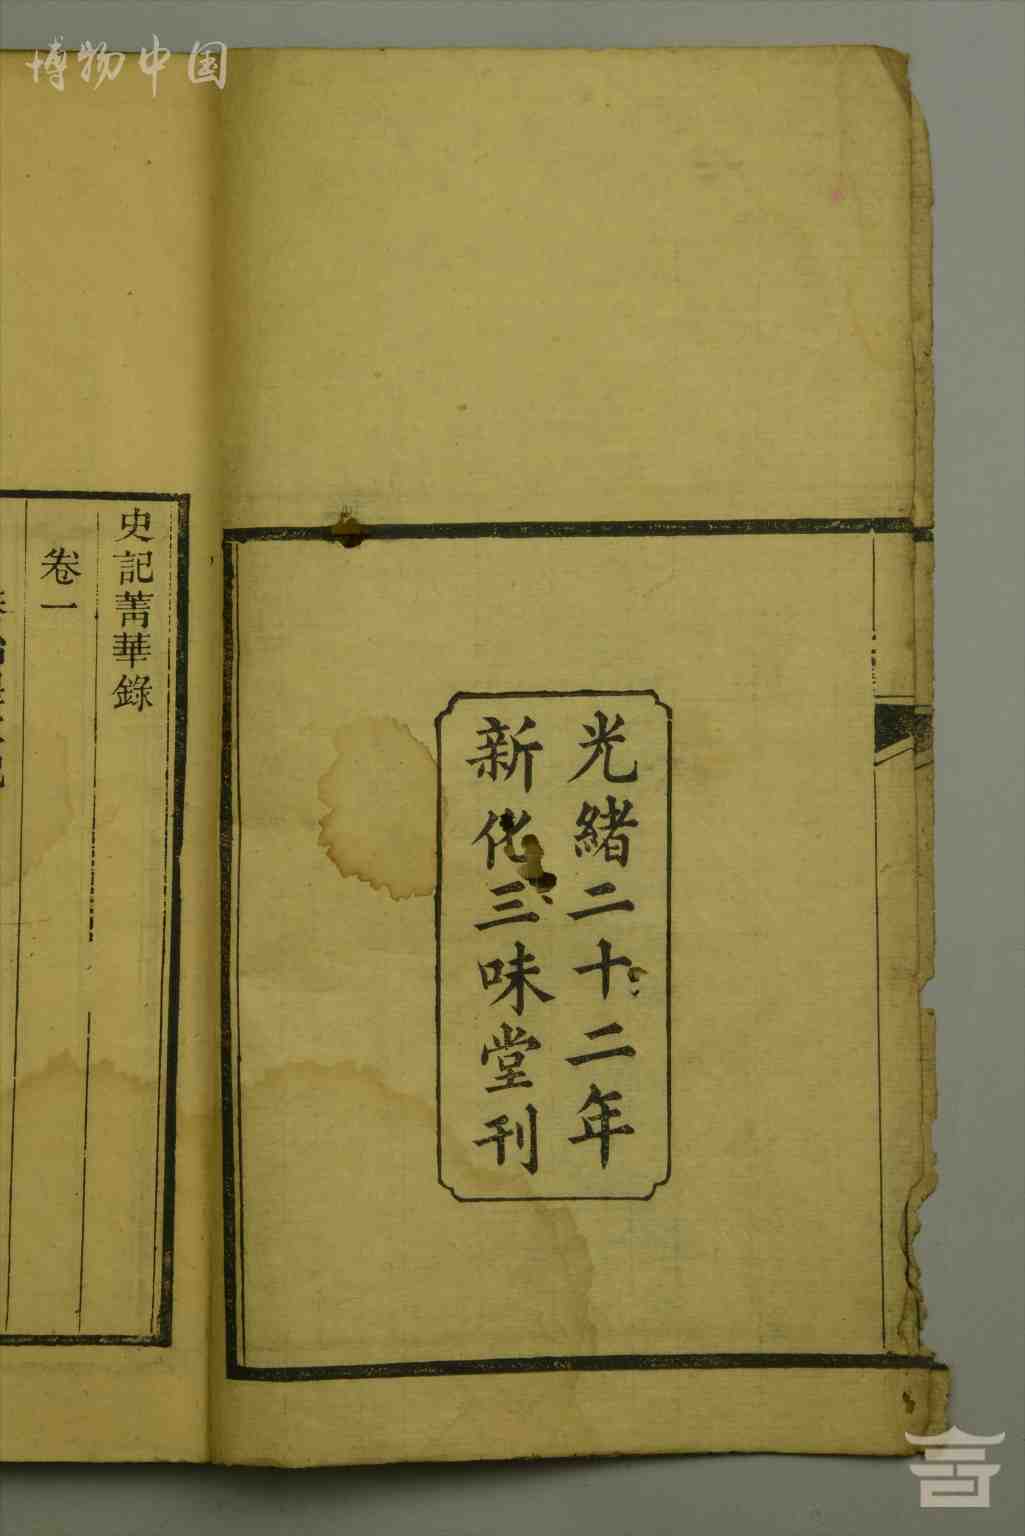 博物中国
光緒二十二年
新化三味堂刊
史記菁華錄
卷一